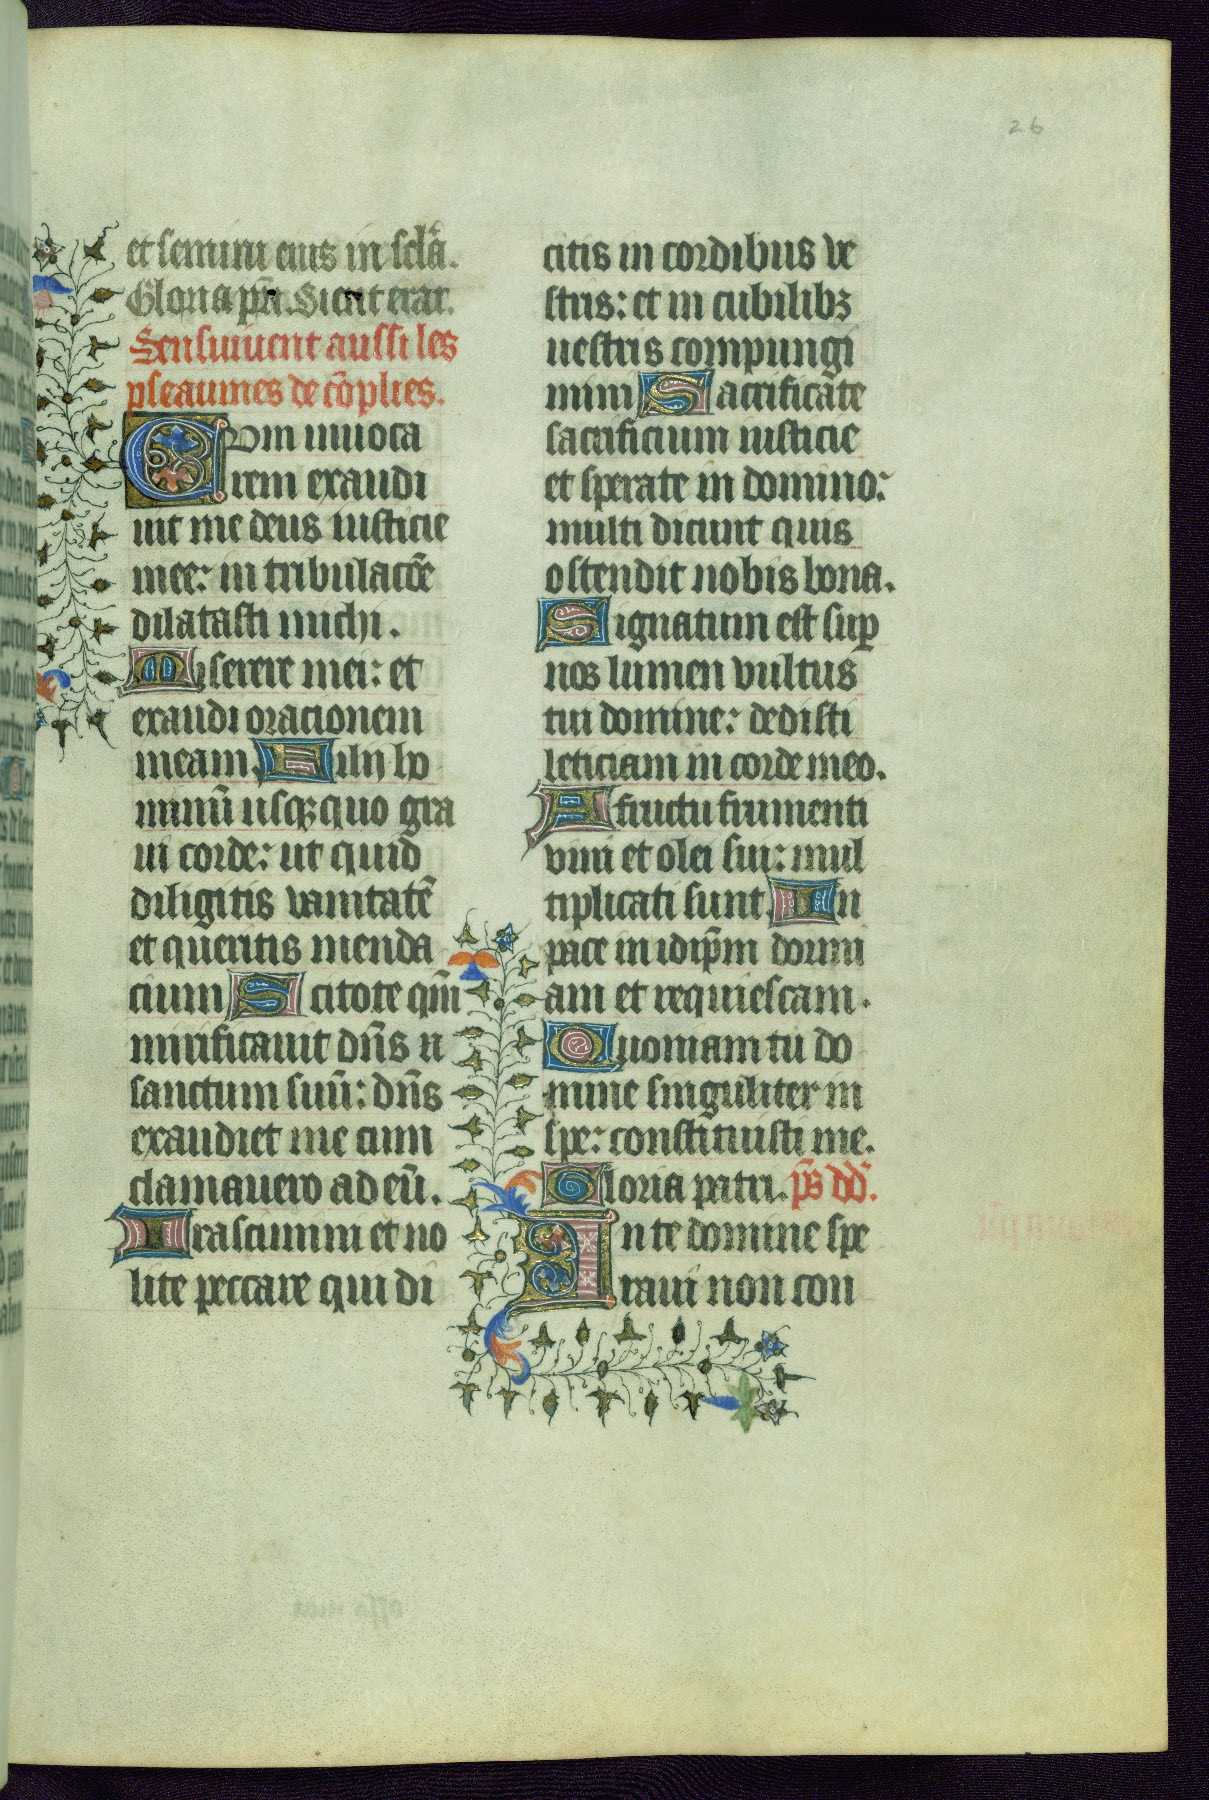 26
et semini eius in scla̅.
Gloria pr̅i. Sicut erat.
Sensuiuent aussi les
pseaumes de co̅plies.
Cvm inuoca
rem exaudi
uit me deus iusticie
mee: in tribulac̅o̅e
dilatasti michi.
Miserere mei: et
exaudi oracionem
meam. Filij ho
minu̅ usq; quo gra
ui corde: ut quid
diligitis vanitate̅
et queritis menda
cium Scitote qm̅
mirificauit dn̅s
sanctum suu̅: dn̅s
exaudiet me cum
clamauero ad eu̅.
Irascimini et no
lite peccare qui di
citis in cordibus ve
stris: et in cubilibꝫ
uestris compungi
mini Sacrificate
sacrificium iusticie
et sperate in domino:
multi dicunt quis
ostendit nobis bona.
Signatum est sup̲
nos lumen vultus
tui domine: dedisti
leticiam in corde meo.
A fructu frumenti
vini et olei sui: mul
tiplicati sunt. In
pace in idip̅m dormi
am et requiescam.
Quoniam tu do
mine singuliter in
spe: constituisti me.
Gloria patri. ps̅ dd̅.
In te domine spe
raui non con